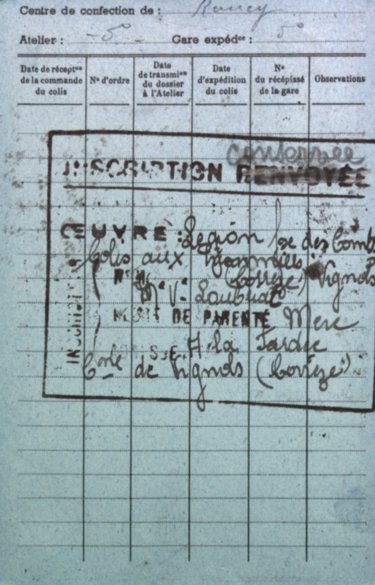 Centre de confection de : Nancy
Atelier : 5º Gare expédᵗᵉ : 5º
Date de récept°ⁿ de la commande du colis
N° d'ordre
Date de transmi°ⁿ du dossier à l'Atelier
Date d'expédition du colis
N° du récépissé de la gare
Observations
conservée
INSCRIPTION RENVOYÉE
ŒUVRE : Légion fse des Comb
Colis aux
(Corrèze) Vignols
Mᵉ Vᵉ Loubriat
DE PARENTÉ Mère
A La Jardie
Cⁿᵉ de Vignols (Corrèze)